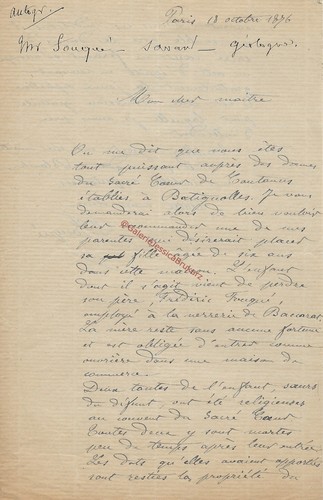 autogr.
Paris 13 octobre 1896
Mr Fouqué – savant – géologue.
Mon cher maître
On me dit que vous êtes
tout puissant auprès des dames
du Sacré Cœur de Coutances
établies à Batignolles. Je vous
demanderai alors de bien vouloir
leur recommander une de mes
parentes qui désirerait placer
sa fille âgée de six ans
dans cette maison. L'enfant
dont il s'agit vient de perdre
son père, Frédéric Fouqué,
employé à la verrerie de Baccarat.
La mère reste sans aucune fortune
et est obligée d'entrer comme
ouvrière dans une maison de
commerce.
Deux tantes de l'enfant, sœurs
du défunt, ont été religieuses
au couvent du Sacré Cœur
Toutes deux y sont mortes
peu de temps après leur entrée.
Les dots qu'elles avaient apportées
sont restées la propriété du
@GalerieJessicaBrukerz